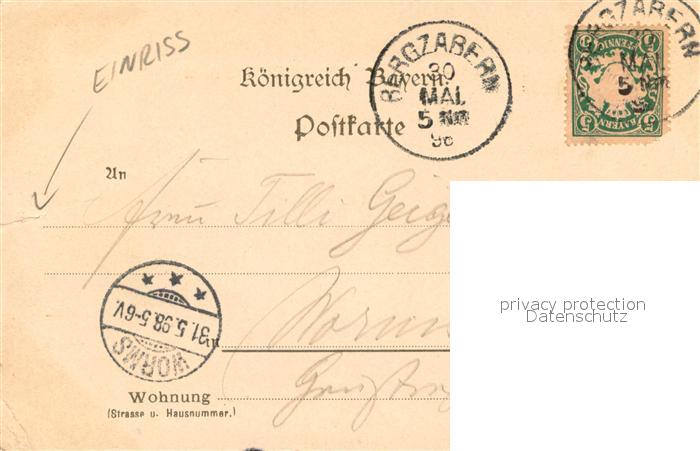 EINRISS
Königreich Bayern.
Postkarte
BERGZABERN
30
MAI.
5 NM
98
BERGZABERN
MAI
5 NM
PFENNIG
BAYERN
5
An
Frau Tilli Geige
31.5.98.5-6V.
WORMS
in
Worms
Wohnung
(Strasse u. Hausnummer.)
privacy protection
Datenschutz